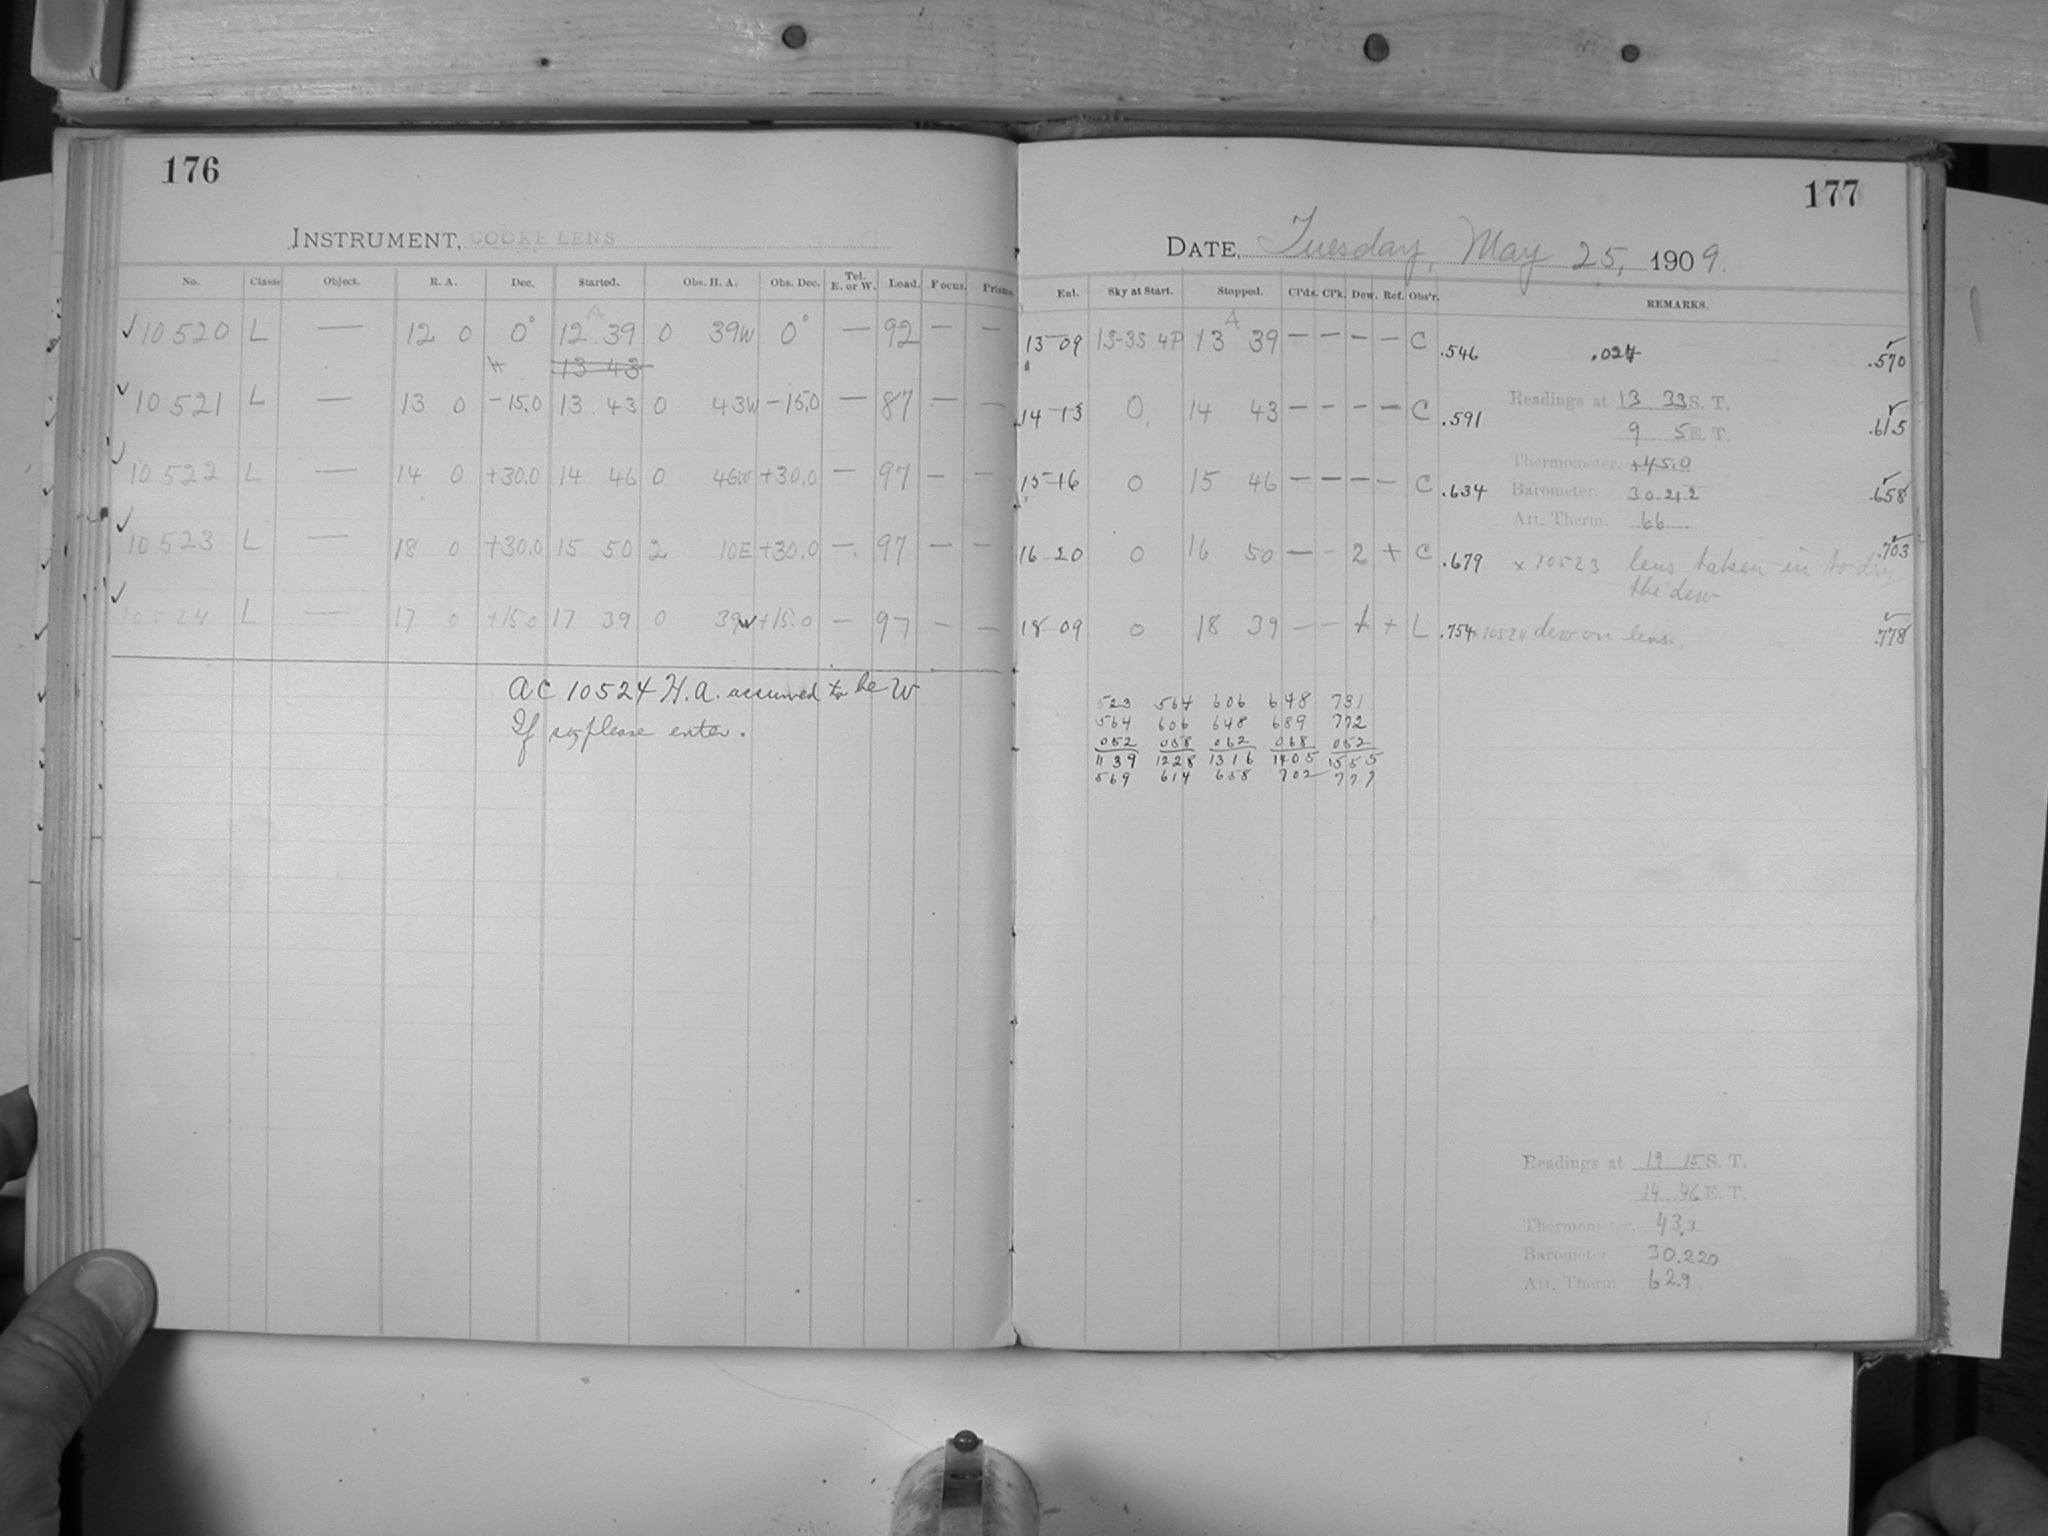 176
INSTRUMENT, COOKE LENS
No. Class Object. R. A. Dec. Started. Obs. H. A. Obs. Dec. Tel. E. or W. Load. Focus. Prisms.
✓ 10520 L — 12 0 0° A 12 39 0 39W 0° — 92 — —
13 43
✓ 10521 L — 13 0 -15.0 13 43 0 43W -15.0 — 87 — —
✓ 10522 L — 14 0 +30.0 14 46 0 46W +30.0 — 97 — —
✓ 10523 L — 18 0 +30.0 15 50 2 10E +30.0 — 97 — —
✓ 10524 L — 17 0 +15.0 17 39 0 39W +15.0 — 97 — —
AC 10524 H.A. assumed to be W
If so, please enter.
177
DATE, Tuesday, May 25, 1909.
Ent. Sky at Start. Stopped. Cl'ds. Cl'k. Dew. Ref. Obs'r. REMARKS.
13-09 1S-3S 4P A 13 39 — — — — C .546 .024 .570
14-13 0 14 43 — — — — C .591 Readings at 13 33 S. T. .615
9 5 E. T.
Thermometer. +45.0
15-16 0 15 46 — — — — C .634 Barometer. 30.212 .658
Att. Therm. 66
16-20 0 16 50 — — 2 + C .679 x 10523 lens taken in to dry .703
the dew
18-09 0 18 39 — — + L .754 x 10524 dew on lens. .778
523 564 606 648 731
564 606 648 689 772
052 058 062 068 052
1139 1228 1316 1405 1555
569 614 658 702 777
Readings at 19 15 S. T.
14 46 E. T.
Thermometer. 43.3
Barometer. 30.220
Att. Therm. 62.9